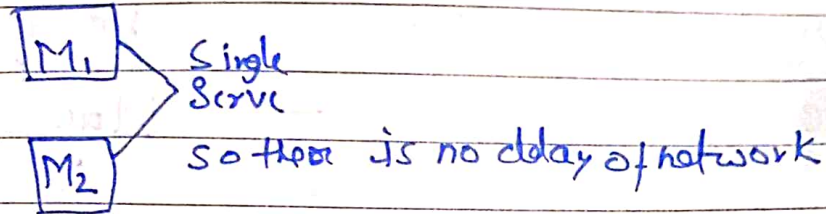 M1
Single
Serve
M2
so ther is no delay of network